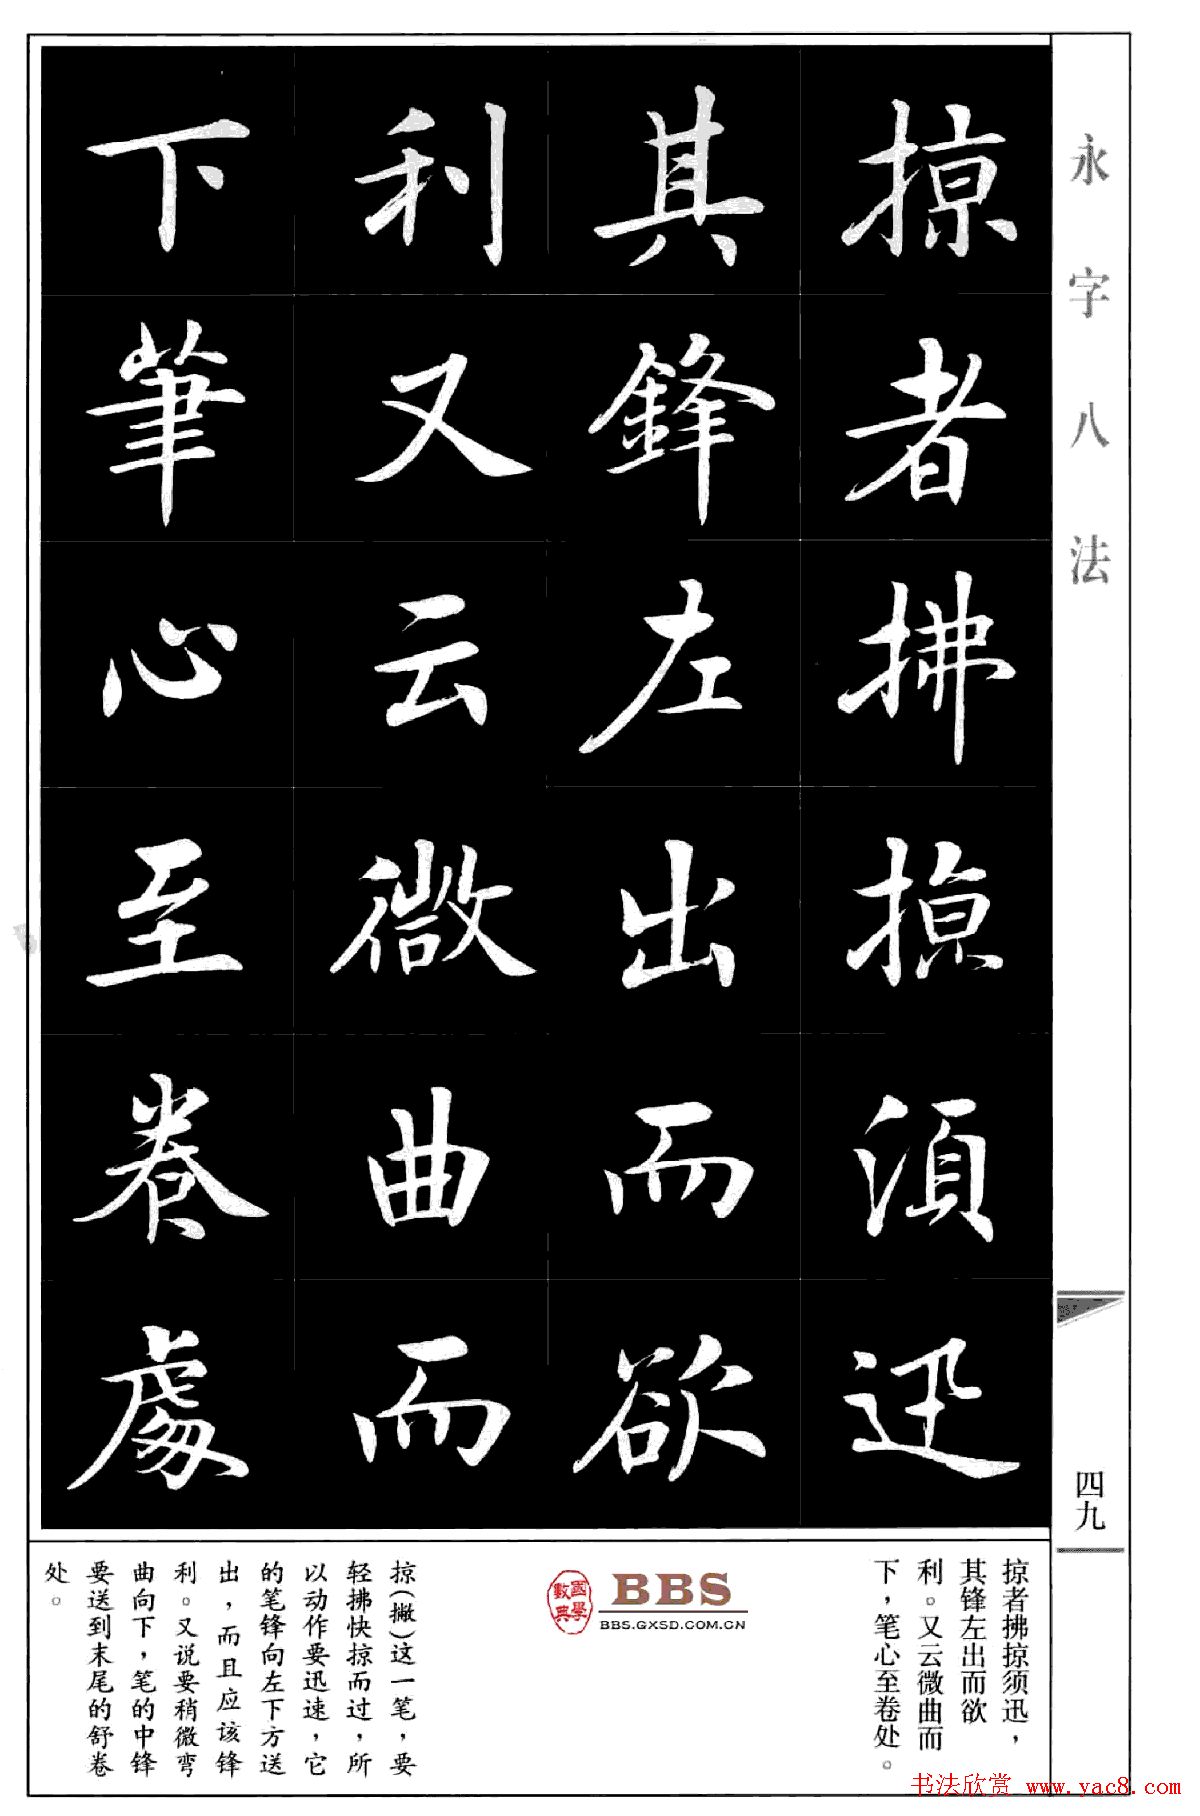 永字八法
四九
掠者拂掠須迅
其鋒左出而欲
利又云微曲而
下筆心至卷處
掠者拂掠须迅，
其锋左出而欲
利。又云微曲而
下，笔心至卷处。
國學
數典
BBS
BBS.GXSD.COM.CN
掠(撇)这一笔，要
轻拂快掠而过，所
以动作要迅速，它
的笔锋向左下方送
出，而且应该锋
利。又说要稍微弯
曲向下，笔的中锋
要送到末尾的舒卷
处。
书法欣赏 www.yac8.com